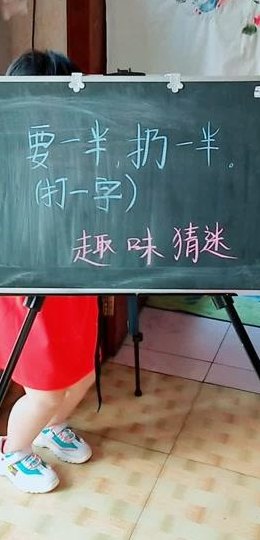 要一半，扔一半。
(打一字)
趣味猜迷